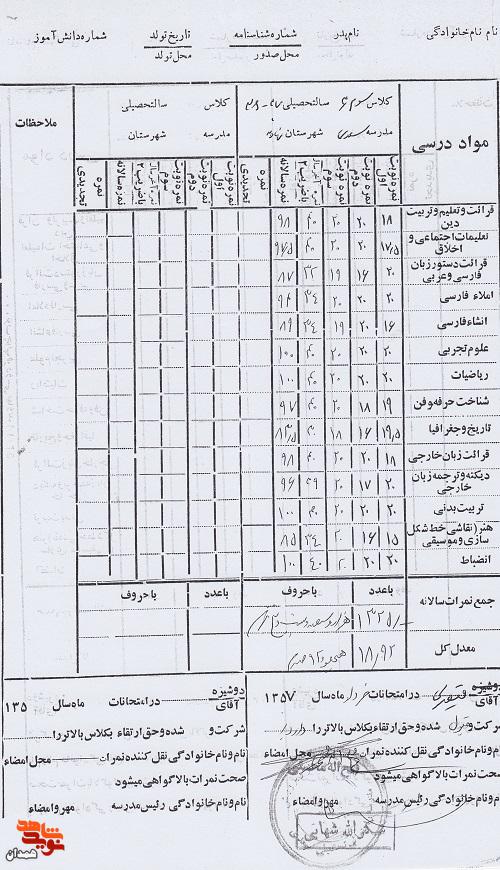 نام نام خانوادگی نام پدر شماره شناسنامه تاریخ تولد شماره دانش آموز
محل صدور محل تولد
مواد درسی
کلاس سوم سالتحصیلی
مدرسه سعدی شهرستان
کلاس سالتحصیلی
مدرسه شهرستان
ملاحظات
نمره نوبت اول نمره نوبت دوم نمره نوبت سوم باضریب ۲ نمره سالانه نمره تجدیدی
نمره نوبت اول نمره نوبت دوم نمره نوبت سوم باضریب ۲ نمره سالانه نمره تجدیدی
قرائت و تعلیم و تربیت دین ۱۸ ۲۰ ۲۰ ۴۰ ۹۸
تعلیمات اجتماعی و اخلاق ۱۷٫۵ ۲۰ ۲۰ ۴۰ ۹۶٫۵
قرائت دستور زبان فارسی و عربی ۲۰ ۱۶ ۱۹ ۳۲ ۸۷
املاء فارسی ۲۰ ۲۰ ۲۰ ۳۴ ۹۴
انشاء فارسی ۱۶ ۲۰ ۱۹ ۳۴ ۸۹
علوم تجربی ۲۰ ۲۰ ۲۰ ۴۰ ۱۰۰
ریاضیات ۲۰ ۲۰ ۲۰ ۴۰ ۱۰۰
شناخت حرفه و فن ۱۹ ۱۸ ۲۰ ۴۰ ۹۷
تاریخ و جغرافیا ۱۹٫۵ ۱۶ ۱۸ ۳۰ ۸۳٫۵
قرائت زبان خارجی ۱۸ ۲۰ ۲۰ ۴۰ ۹۸
دیکته و ترجمه زبان خارجی ۲۰ ۱۷ ۲۰ ۳۹ ۹۶
تربیت بدنی ۲۰ ۲۰ ۲۰ ۴۰ ۱۰۰
هنر (نقاشی خط شکل سازی و موسیقی ۱۵ ۱۶ ۲۰ ۳۴ ۸۵
انضباط ۲۰ ۲۰ ۲۰ ۴۰ ۱۰۰
باعدد باحروف باعدد باحروف
جمع نمرات سالانه
معدل کل ۱۸٫۹۲
دوشیزه
آقای در امتحانات خرداد ماه سال ۱۳۵۷
شرکت و قبول شده و حق ارتقاء بکلاس بالاتر را دارد
نام و نام خانوادگی نقل کننده نمرات محل امضاء
صحت نمرات بالا گواهی میشود
نام و نام خانوادگی رئیس مدرسه مهر و امضاء
دوشیزه
آقای در امتحانات ماه سال ۱۳۵
شرکت و شده و حق ارتقاء بکلاس بالاتر را
نام و نام خانوادگی نقل کننده نمرات محل امضاء
صحت نمرات بالا گواهی میشود
نام و نام خانوادگی رئیس مدرسه مهر و امضاء
نوید شاهد
همدان